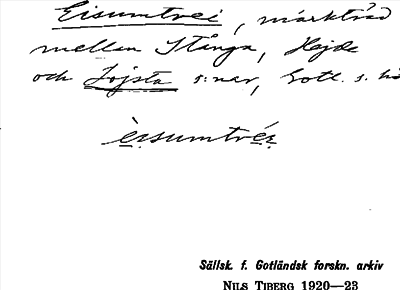 Eisumtrei, märkträd
mellan Stånga, Hejde
och Lojsta s:nar, Gotl. s. hä
èisumtréi
Sällsk. f. Gotländsk forskn. arkiv
NILS TIBERG 1920—23